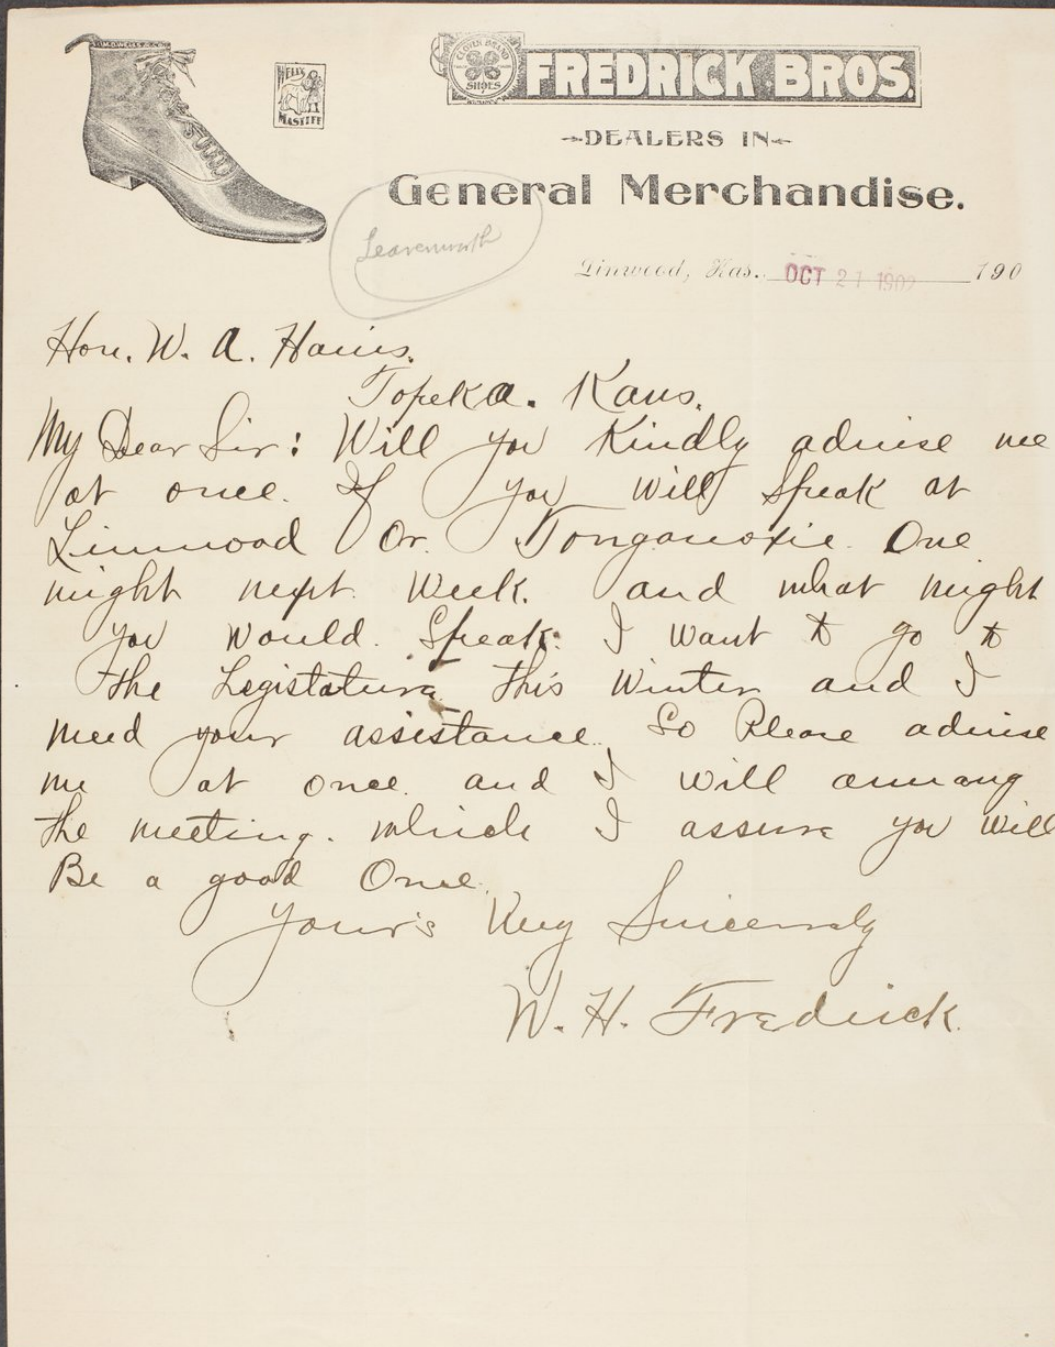 CLOVER BRAND SHOES
FREDRICK BROS.
WELL'S MASTIFF
DEALERS IN
General Merchandise.
Leavenworth
Linwood, Kas. OCT 21 1902 190
Hon. W. A. Harris.
Topeka. Kans.
My Dear Sir: Will you Kindly advise me
at once. If you will speak at
Linnwood Or. Tonganoxie. One
night next. Week. and what night
you would. Speak. I want to go to
the Legistature this Winter and I
need your assistance. So Please advise
me at once. and I will arrang
the meeting. which I assure you will
Be a good One.
Your's Very Sincerely
W. H. Fredrick.